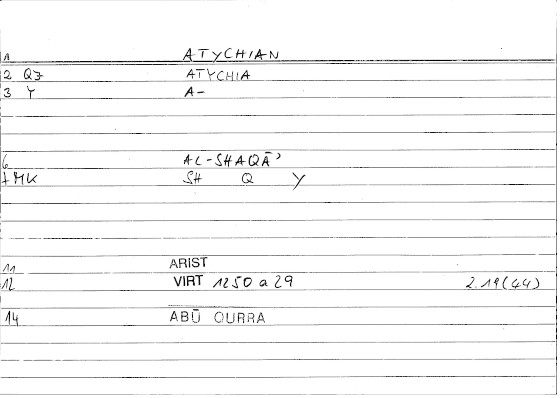 1 ATYCHIAN
2 QZ ATYCHIA
3 Y A-
6 AL-SHAQĀ'
7 MK SH Q Y
11 ARIST
12 VIRT 1250 a 29 2.19(44)
14 ABŪ QURRA